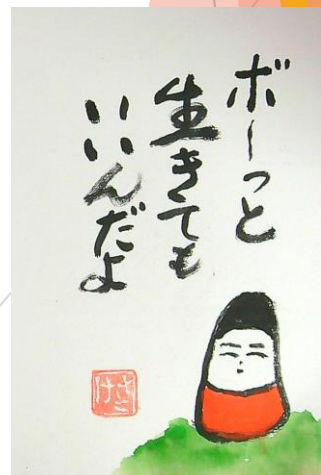 ボーっと
生きても
いいんだよ